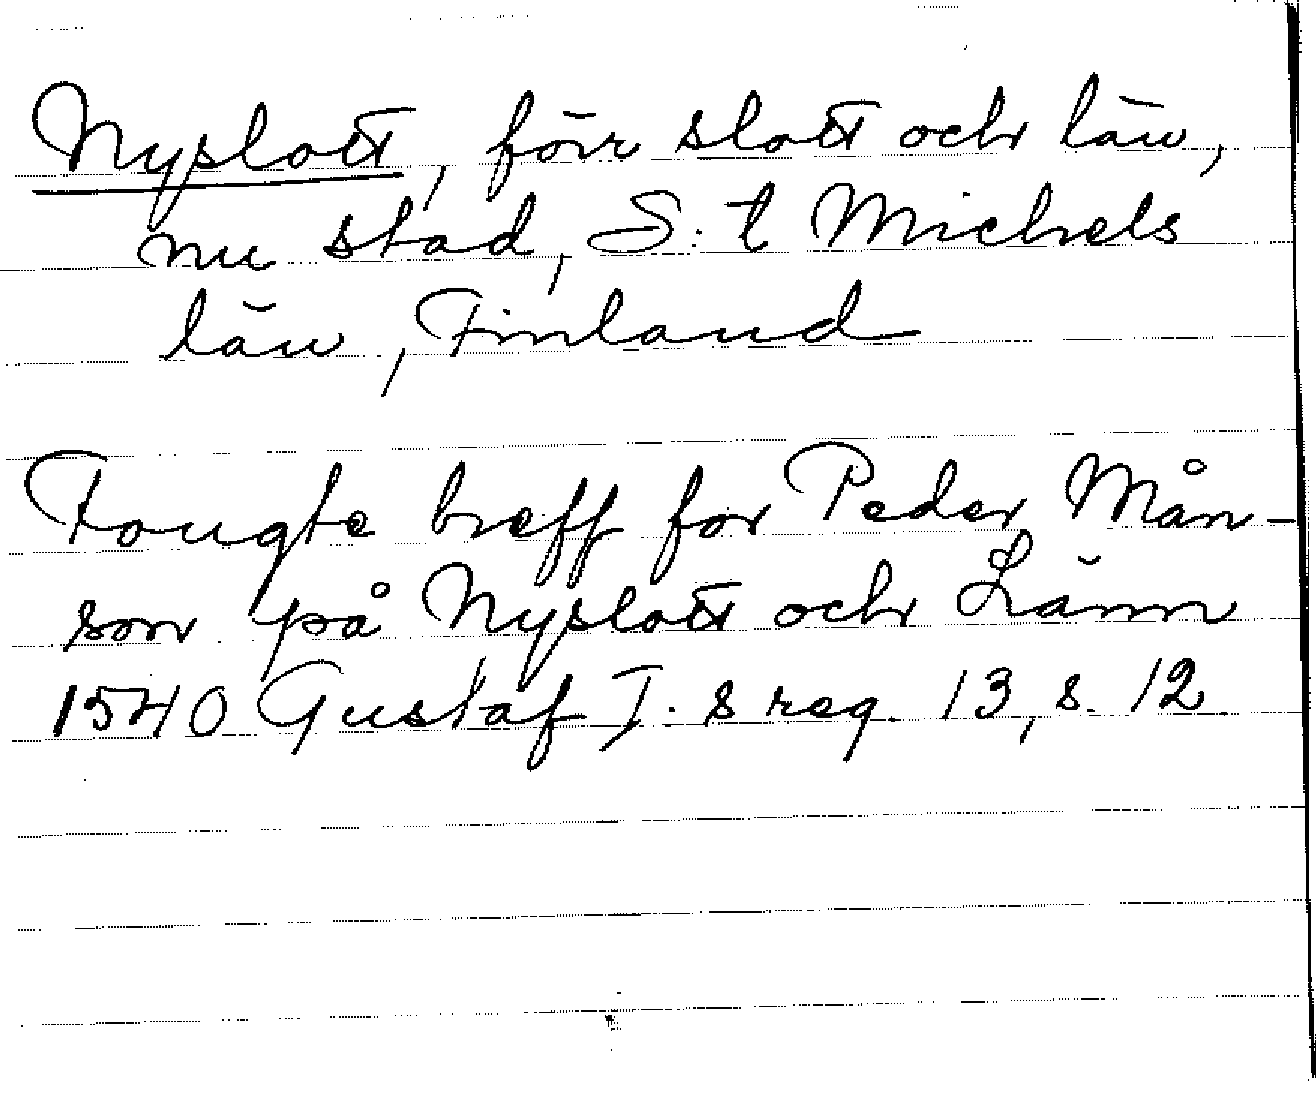 Nyslott, förr slott och län,
nu stad, S:t Michels
län, Finland
Fougte breff for Peder Mån-
son på Nyslott och Länn
1540 Gustaf I.s reg. 13, s. 12